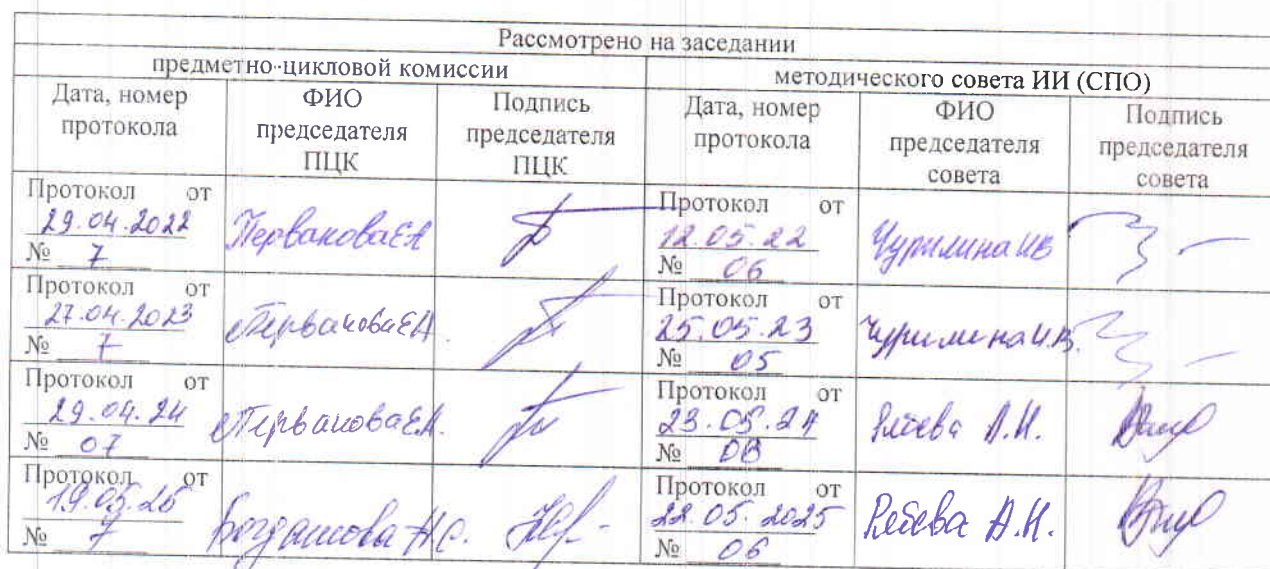 Рассмотрено на заседании
предметно-цикловой комиссии методического совета ИИ (СПО)
Дата, номер протокола ФИО председателя ПЦК Подпись председателя ПЦК Дата, номер протокола ФИО председателя совета Подпись председателя совета
Протокол от
29.04.2022
№ 7
Перванова ЕА
Протокол от
12.05.22
№ 06
Чурилина ИВ
Протокол от
27.04.2023
№ 7
Перванова ЕА.
Протокол от
25.05.23
№ 05
Чурилина И.В.
Протокол от
29.04.24
№ 07
Перванова Е.А.
Протокол от
23.05.24
№
А.Н.
Протокол от
19.05.25
№ 7
Н.С.
Протокол от
22.05.2025
№ 06
А.Н.